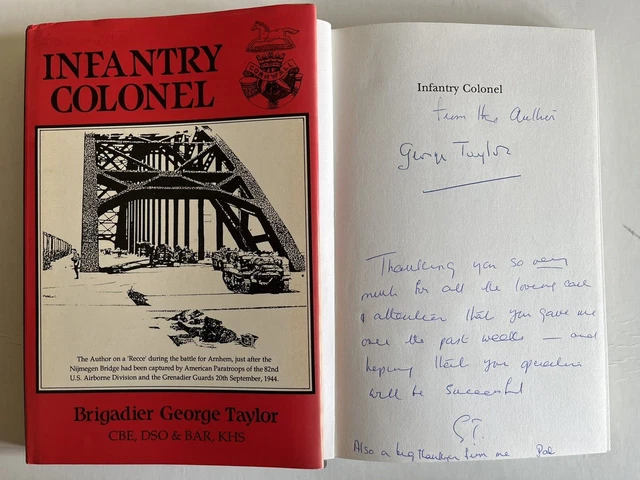 INFANTRY
COLONEL
CORNWALL
The Author on a 'Recce' during the battle for Arnhem, just after the
Nijmegen Bridge had been captured by American Paratroops of the 82nd
U.S. Airborne Division and the Grenadier Guards 20th September, 1944.
Brigadier George Taylor
CBE, DSO & BAR, KHS
Infantry Colonel
from the Author
George Taylor
Thanking you so very
much for all the loving care
& attention that you gave me
over the past weeks — and
hoping that your operation
will be successful
G.T.
Also a big thankyou from me